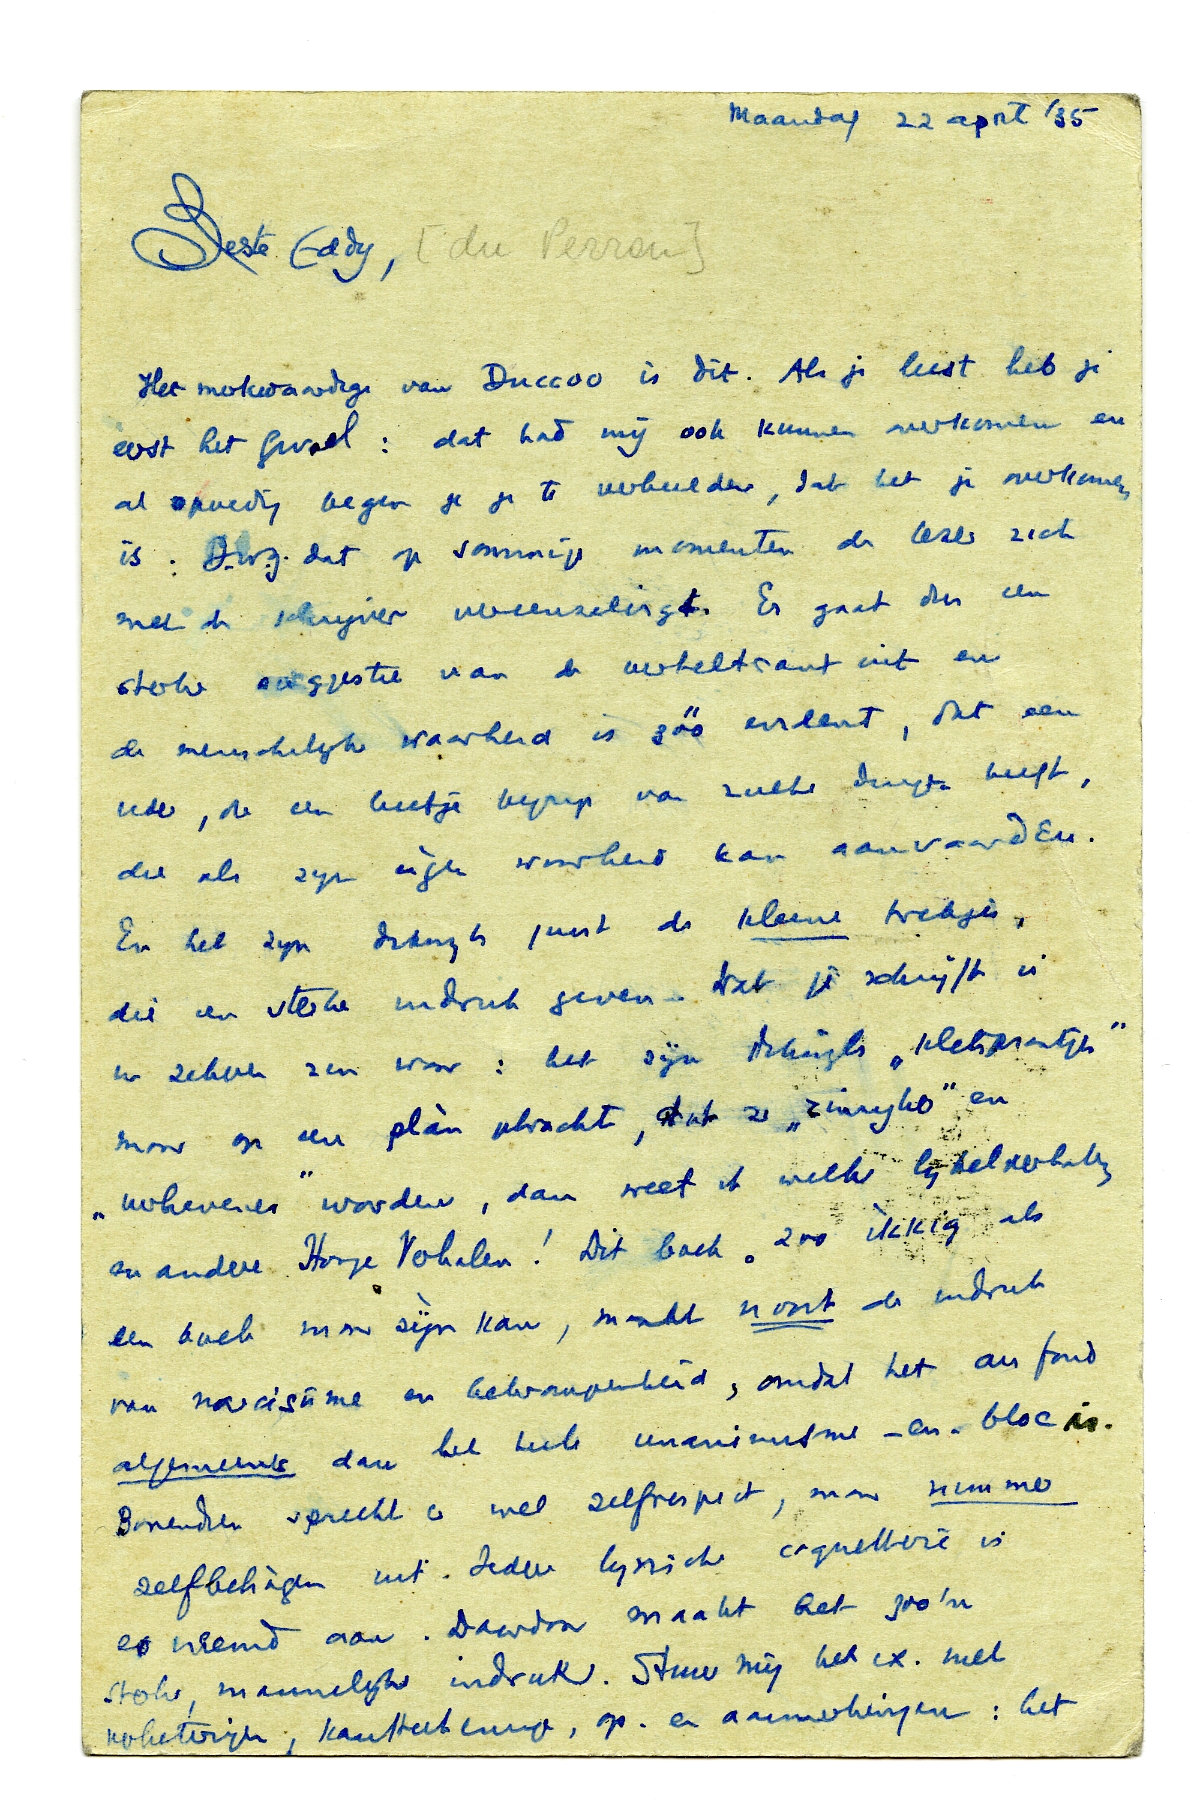 Maandag 22 april '35
Beste Eddy, [du Perron]
Het merkwaardige van Duccoo is dit. Als je leest heb je
eerst het gevoel : dat had mij ook kunnen overkomen en
al spoedig begin je je te verbeelden, dat het je overkomen
is. D.w.z. dat op sommige momenten de lezer zich
met de schrijver vereenzelvigt. Er gaat dus een
sterke suggestie van de verteltrant uit en
de menschelijke waarheid is zóó evident, dat een
ieder, die een beetje begrip van zulke dingen heeft,
die als zijn eigen waarheid kan aanvaarden.
En het zijn dikwijls juist de kleine trekjes,
die een sterke indruk geven. Wat je schrijft is
in zekeren zin waar : het zijn dikwijls „kletspraatjes"
maar op een plan gebracht, dat ze „zinrijke" en
„verhevener" worden, dan weet ik welke
en andere Hooge Verhalen! Dit boek, zoo ikkig als
een boek maar zijn kan, maakt nooit de indruk
van narcisisme en bekrompenheid, omdat het au fond
algemeener dan het heele unanimisme-en-bloc is.
Bovendien spreekt er wel zelfrespect, maar nimmer
zelfbehagen uit. Iedere lyrische coquetterie is
er vreemd aan. Daardoor maakt het zoo'n
sterke, mannelijke indruk. Stuur mij het ex. met
verbeteringen, kantteekeningen, op- en aanmerkingen : het